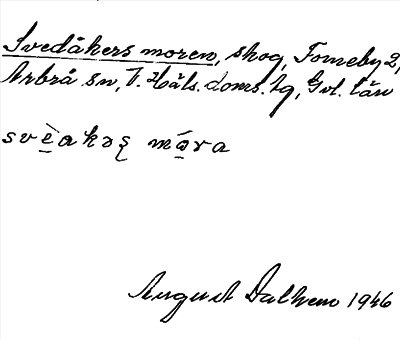 Svedåkers moren, skog, Forneby 2,
Arbrå sn, V. Häls. doms. tg, Gvl. län
svèakəʂ mára
August Dalhem 1946